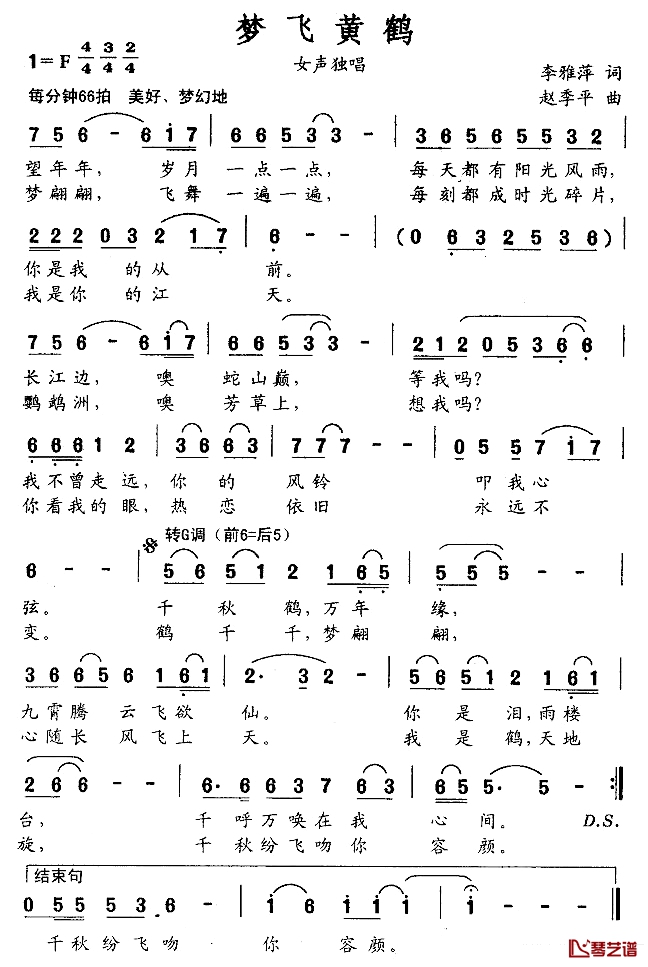 梦飞黄鹤
1=F 4/4 3/4 2/4
女声独唱
李雅萍 词
每分钟66拍 美好、梦幻地
赵季平 曲
7 5 6 - 6 i 7 | 6 6 5 3 3 - | 3 6 5 6 5 5 3 2 |
望年年， 岁月 一点一点， 每天都有阳光风雨，
梦翩翩， 飞舞 一遍一遍， 每刻都成时光碎片，
2 2 2 0 3 2 1 7 | 6 - - | (0 6 3 2 5 3 6) |
你是我 的从 前。
我是你 的江 天。
7 5 6 - 6 i 7 | 6 6 5 3 3 - | 2 1 2 0 5 3 6 6 |
长江边， 噢 蛇山巅， 等我吗？
鹦鹉洲， 噢 芳草上， 想我吗？
6 6 6 1 2 | 3 6 6 3 | 7 7 7 - - | 0 5 5 7 i 7 |
我不曾走远，你的 风铃 叩我心
你看我的眼，热恋 依旧 永远不
转G调（前6=后5）
6 - - | 5 6 5 1 2 1 6 5 | 5 5 5 - - |
弦。 千秋鹤，万年 缘，
变。 鹤千千，梦翩 翩，
3 6 6 5 6 1 6 1 | 2· 3 2 - | 5 6 5 1 2 1 6 1 |
九霄腾云飞欲 仙。 你是泪，雨楼
心随长风飞上 天。 我是鹤，天地
2 6 6 - - | 6· 6 6 3 7 6 3 | 6 5 5· 5 - :|
台， 千呼万唤在我 心间。 D.S.
旋， 千秋纷飞吻你 容颜。
结束句
0 5 5 5 3 6 - | i 6 i i i | i - - - |
千秋纷飞吻 你 容颜。
琴艺谱